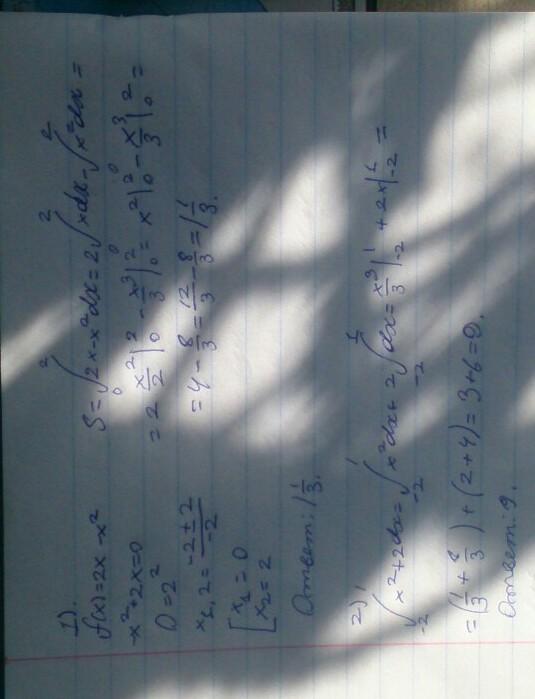 1).
f(x)=2x-x²
-x²+2x=0
D=2²
x₁,₂=(-2±2)/(-2)
[x₁=0
[x₂=2
S=∫₀²2x-x²dx=2∫₀²xdx-∫₀²x²dx=
=2 x²/2|₀²-x³/3|₀²=x²|₀²-x³/3|₀²=
=4-8/3=12/3-8/3=1 1/3.
Ответ: 1 1/3.
2)
∫₋₂¹x²+2dx=∫₋₂¹x²dx+2∫₋₂¹dx=x³/3|₋₂¹+2x|₋₂¹=
=(1/3+8/3)+(2+4)=3+6=9.
Ответ: 9.